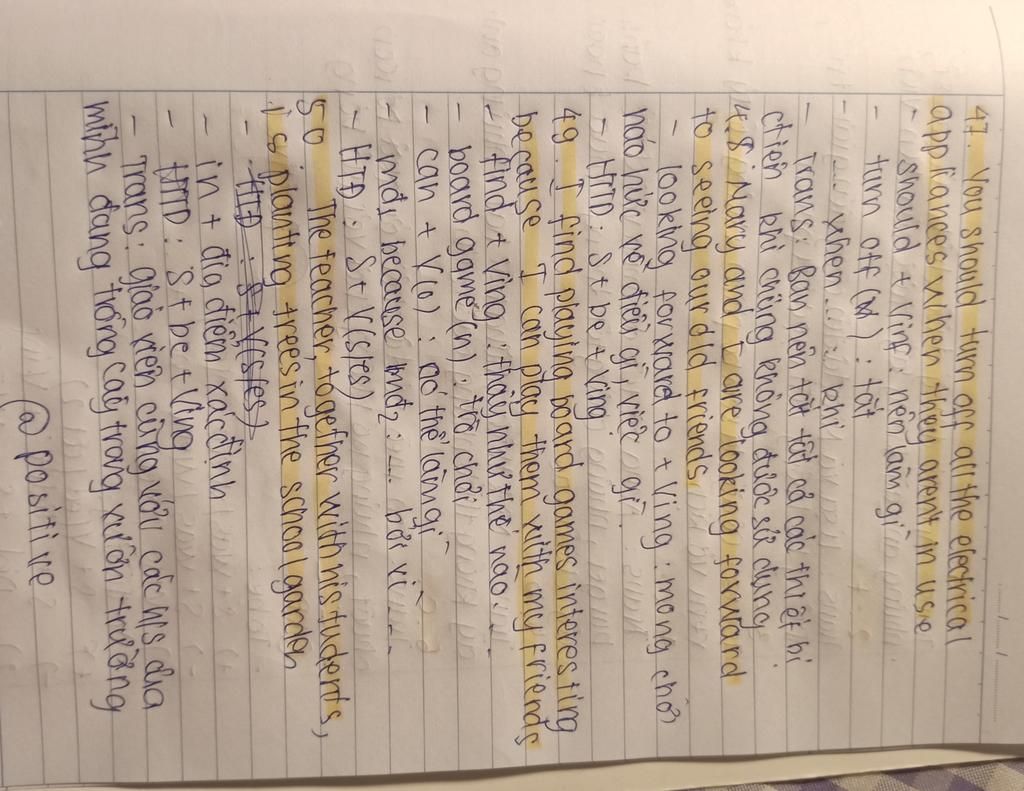 47. You should turn off all the electrical
appliances when they aren't in use
- should + Ving : nên làm gì
- turn off (v) : tắt
- when ... : khi
- Trans : Bạn nên tắt tất cả các thiết bị
điện khi chúng không được sử dụng
48. Mary and I are looking forward
to seeing our old friends
- looking forward to + Ving : mong chờ,
náo hức về điều gì, việc gì.
- HTTD : S + be + Ving
49. I find playing board games interesting
because I can play them with my friends
- find + Ving : thấy như thế nào ...
- board game (n) : trò chơi
- can + V(o) : có thể làm gì
- mđ1 because mđ2 : ... bởi vì ...
- HTĐ : S + V(s/es)
50. The teacher, together with his tudents,
is planting trees in the school garden
- HTĐ : S + V(s/es)
- in + địa điểm xác định
- HTTD : S + be + Ving
- Trans : giáo viên cùng với các h/s của
mình đang trồng cây trong vườn trường
@ positive